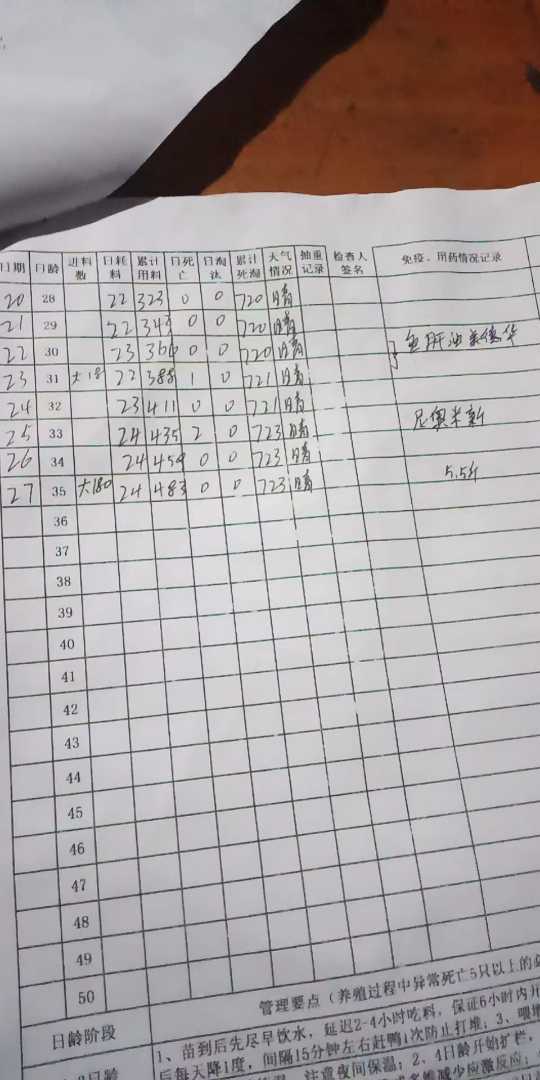 日期 日龄 进料数 日耗料 累计用料 日死亡 日淘汰 累计死淘 天气情况 抽重记录 检查人签名 免疫、用药情况记录
20 28 22 323 0 0 720 晴
21 29 22 343 0 0 720 晴
22 30 23 366 0 0 720 晴 鱼肝油
23 31 大18 22 388 1 0 721 晴
24 32 23 411 0 0 721 晴
25 33 24 435 2 0 723 晴 尼奥米新
26 34 24 459 0 0 723 晴
27 35 大180 24 483 0 0 723 晴 5.5斤
36
37
38
39
40
41
42
43
44
45
46
47
48
49
50
管理要点（养殖过程中异常死亡5只以上的
日龄阶段
1、苗到后先尽早饮水，延迟2-4小时吃料，保证6小时内
后每天降1度，间隔15分钟左右赶鸭1次防止打堆；3、
注意夜间保温；2、4日龄开始扩栏，
减少应激反应；